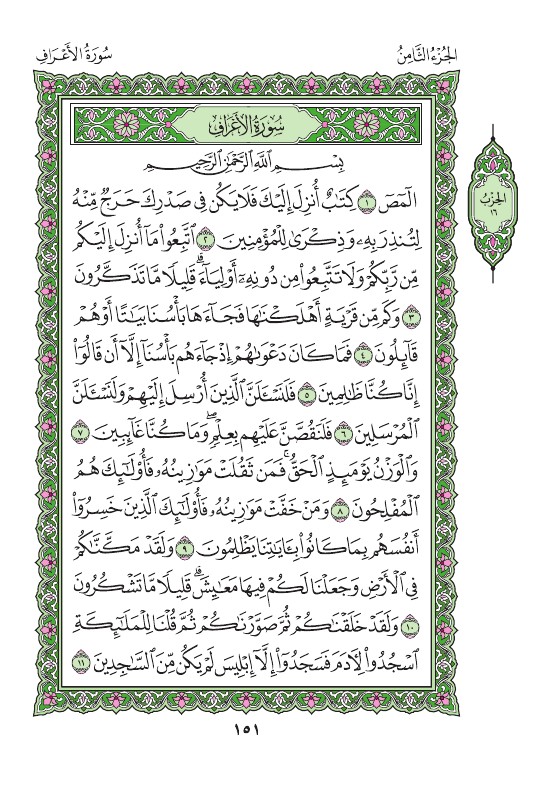 سُورَةُ الأَعْرَافِ
الجُزْءُ الثَّامِنُ
سُورَةُ الأَعْرَافِ
بِسْمِ ٱللَّهِ ٱلرَّحْمَٰنِ ٱلرَّحِيمِ
الٓمٓصٓ ١ كِتَٰبٌ أُنزِلَ إِلَيْكَ فَلَا يَكُن فِى صَدْرِكَ حَرَجٌ مِّنْهُ
لِتُنذِرَ بِهِۦ وَذِكْرَىٰ لِلْمُؤْمِنِينَ ٢ ٱتَّبِعُوا۟ مَآ أُنزِلَ إِلَيْكُم
مِّن رَّبِّكُمْ وَلَا تَتَّبِعُوا۟ مِن دُونِهِۦٓ أَوْلِيَآءَ ۗ قَلِيلًا مَّا تَذَكَّرُونَ
٣ وَكَم مِّن قَرْيَةٍ أَهْلَكْنَٰهَا فَجَآءَهَا بَأْسُنَا بَيَٰتًا أَوْ هُمْ
قَآئِلُونَ ٤ فَمَا كَانَ دَعْوَىٰهُمْ إِذْ جَآءَهُم بَأْسُنَآ إِلَّآ أَن قَالُوٓا۟
إِنَّا كُنَّا ظَٰلِمِينَ ٥ فَلَنَسْـَٔلَنَّ ٱلَّذِينَ أُرْسِلَ إِلَيْهِمْ وَلَنَسْـَٔلَنَّ
ٱلْمُرْسَلِينَ ٦ فَلَنَقُصَّنَّ عَلَيْهِم بِعِلْمٍ ۖ وَمَا كُنَّا غَآئِبِينَ ٧
وَٱلْوَزْنُ يَوْمَئِذٍ ٱلْحَقُّ ۚ فَمَن ثَقُلَتْ مَوَٰزِينُهُۥ فَأُو۟لَٰٓئِكَ هُمُ
ٱلْمُفْلِحُونَ ٨ وَمَنْ خَفَّتْ مَوَٰزِينُهُۥ فَأُو۟لَٰٓئِكَ ٱلَّذِينَ خَسِرُوٓا۟
أَنفُسَهُم بِمَا كَانُوا۟ بِـَٔايَٰتِنَا يَظْلِمُونَ ٩ وَلَقَدْ مَكَّنَّٰكُمْ
فِى ٱلْأَرْضِ وَجَعَلْنَا لَكُمْ فِيهَا مَعَٰيِشَ ۗ قَلِيلًا مَّا تَشْكُرُونَ
١٠ وَلَقَدْ خَلَقْنَٰكُمْ ثُمَّ صَوَّرْنَٰكُمْ ثُمَّ قُلْنَا لِلْمَلَٰٓئِكَةِ
ٱسْجُدُوا۟ لِـَٔادَمَ فَسَجَدُوٓا۟ إِلَّآ إِبْلِيسَ لَمْ يَكُن مِّنَ ٱلسَّٰجِدِينَ ١١
الحِزْبُ
١٦
١٥١